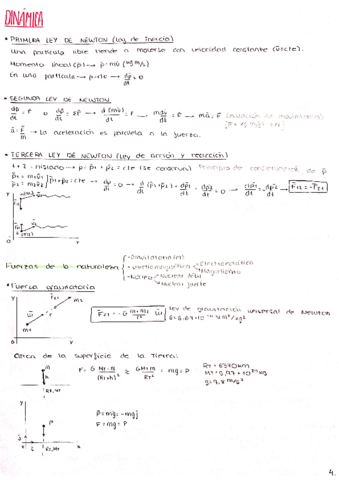 DINÁMICA
• PRIMERA LEY DE NEWTON (Ley de Inercia)
Una partícula libre tiende a moverse con velocidad constante (v=cte).
Momento lineal (p) → p = mv (kg m/s)
En una partícula → p = cte → dp/dt = 0
• SEGUNDA LEY DE NEWTON
dp/dt = F o dp/dt = ΣF → d(mv)/dt = F → m dv/dt = F → ma = F
a = F/m → La aceleración es paralela a la fuerza.
• TERCERA LEY DE NEWTON (Ley de acción y reacción)
1 + 2 = aislado → p = p1 + p2 = cte (se conserva) Principio de conservación de p
p1 = m1v1
p2 = m2v2 } p1 + p2 = cte → dp/dt = 0 → d/dt (p1 + p2) = dp1/dt + dp2/dt = 0 → dp1/dt = - dp2/dt → F12 = -F21
Fuerzas de la naturaleza
- Gravitatoria
- Electromagnética
Electrostática
Magnetismo
- Nuclear
Nuclear débil
Nuclear fuerte
• Fuerza gravitatoria
Ley de gravitación universal de Newton
G = 6,67·10⁻¹¹ N m²/kg²
Cerca de la superficie de la Tierra:
F = G MT·m/(RT+h)² ≈ G MT·m/RT² = mg = P
RT = 6370km
g = 9,8 m/s²
RT, MT
P = mg = -mgj
F = mg = P
RT, MT
4.